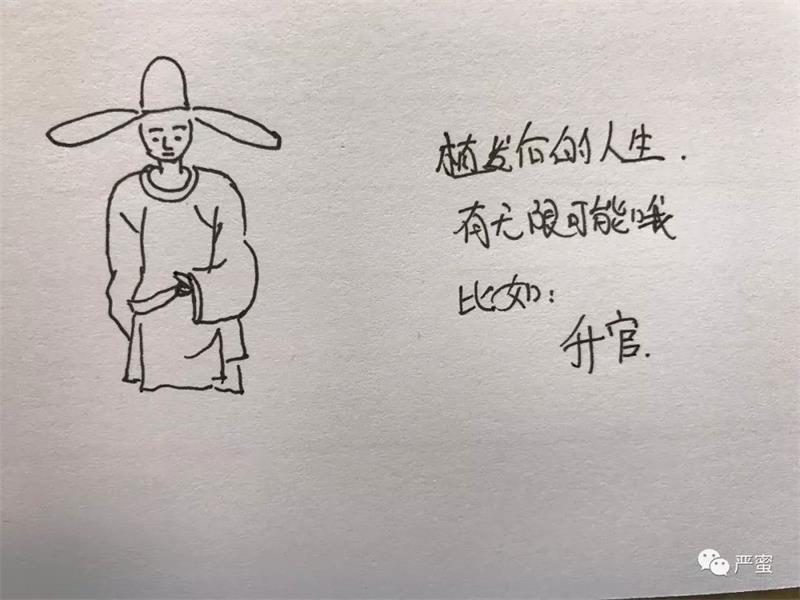 植发后的人生.
有无限可能哦
比如:
升官.
严蜜